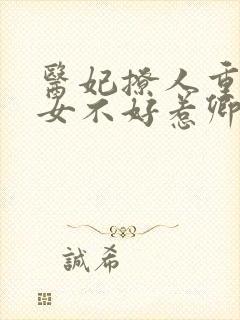 醫妃撩人重
女不好惹卿
誠希